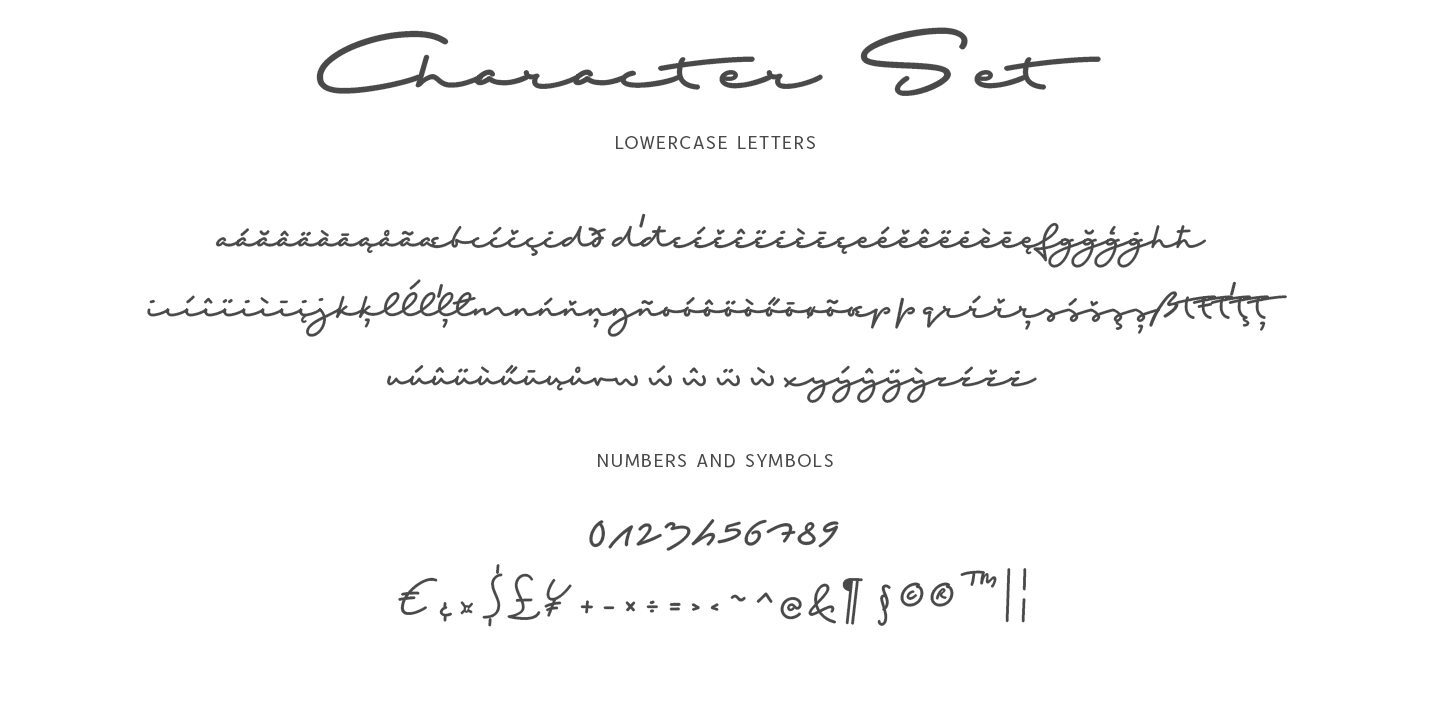 Character Set
LOWERCASE LETTERS
aáăâäàāąåãæbcćčçċdðďđɛɛ́ɛ̌ɛ̂ɛ̈ɛ̇ɛ̀ɛ̄ɛ̨eéěêëėèēęfgğģġhħ
ıiíîïiìīįjkķlĺľļłmnńňņŋñoóôöòőōøõœpþqrŕřŗsśšşșßtŧťţț
uúûüùűūųůvwẃŵẅẁxyýŷÿỳzźžż
NUMBERS AND SYMBOLS
0123456789
€¢¤$£¥+−×÷=><~^@&¶§©®™|¦